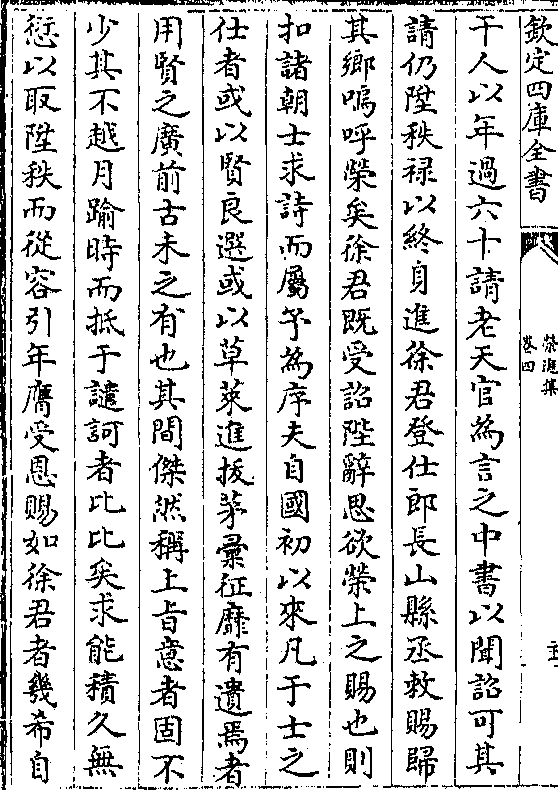 欽定四庫全書
榮進集
卷四
干人以年過六十請老天官為言之中書以聞詔可其
請仍陞秩禄以終身進徐君登仕郎長山縣丞敕賜歸
其鄉嗚呼榮矣徐君既受詔陛辭思欲榮上之賜也則
扣諸朝士求詩而屬予為序夫自國初以來凡于士之
仕者或以賢良選或以草萊進拔茅彚征靡有遺焉者
用賢之廣前古未之有也其間傑然稱上旨意者固不
少其不越月踰時而抵于譴訶者比比矣求能積久無
愆以取陞秩而從容引年膺受恩賜如徐君者幾希自